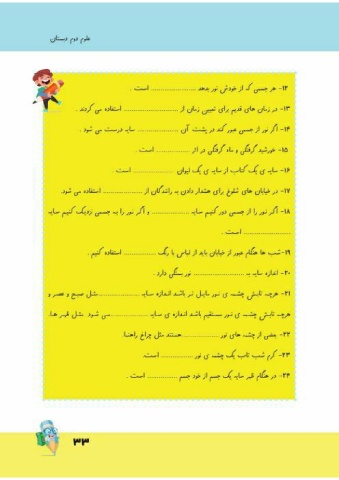 علوم دوم دبستان
۱۲- هر جسمی که از خودش نور بدهد ..................... است .
۱۳- در زمان های قدیم برای تعیین زمان از .......................... استفاده می کردند .
۱۴- اگر نور از جسمی عبور کند در پشت آن .................... سایه درست می شود .
۱۵- خورشید گرفتگی و ماه گرفتگی در اثر ................. است .
۱۶- سایه ی یک کتاب از سایه ی یک لیوان ................... است.
۱۷- در خیابان های شلوغ برای هشدار دادن به رانندگان از ................... استفاده می شود.
۱۸- اگر نور را از جسمی دور کنیم سایه .................. و اگر نور را به جسمی نزدیک کنیم سایه
...................... است .
۱۹- شب ها هنگام عبور از خیابان باید از لباس با رنگ ................ استفاده کنیم .
۲۰- اندازه سایه به ......................... نور بستگی دارد .
۲۱- هرچه تابش چشمه ی نور مایل تر باشد اندازه سایه .....................مثل صبح و عصر و
هرچه تابش چشمه ی نور مستقیم باشد اندازه ی سایه ...................می شود مثل ظهر ها.
۲۲- بعضی از چشمه های نور .................هستند مثل چراغ راهنما.
۲۳- کرم شب تاب یک چشمه ی نور ................ است.
۲۴- در هنگام ظهر سایه یک جسم از خود جسم ............... است .
۳۳